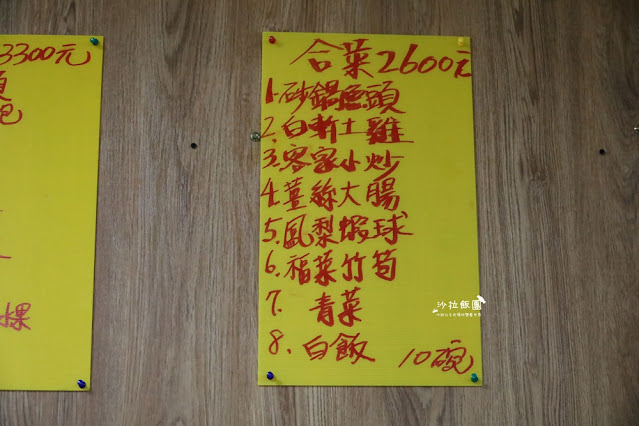 3300元
合菜2600元
1.砂鍋魚頭
2.白斬土雞
3.客家小炒
4.薑絲大腸
5.鳳梨蝦球
6.福菜竹筍
7. 青菜
8.白飯 10碗
粿
沙拉飯團